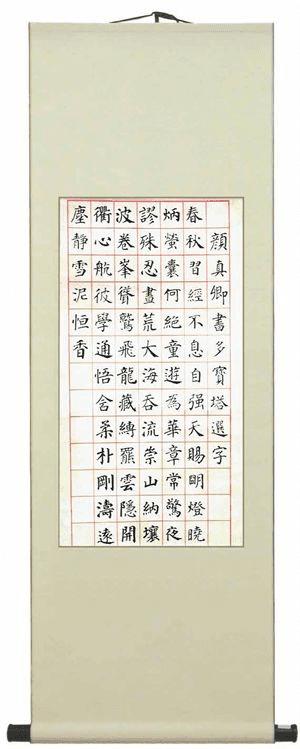 顏真卿書多寶塔選字
春秋習經不息自强天賜明燈曉
炳螢囊何絕童遊為華章常驚夜
謬殊忍畫荒大海吞流崇山納壤
波卷峯聳鷲飛龍藏縛羆雲隱開
衢心航彼學通悟舍柔朴剛濤遠
塵靜雪泥恒香